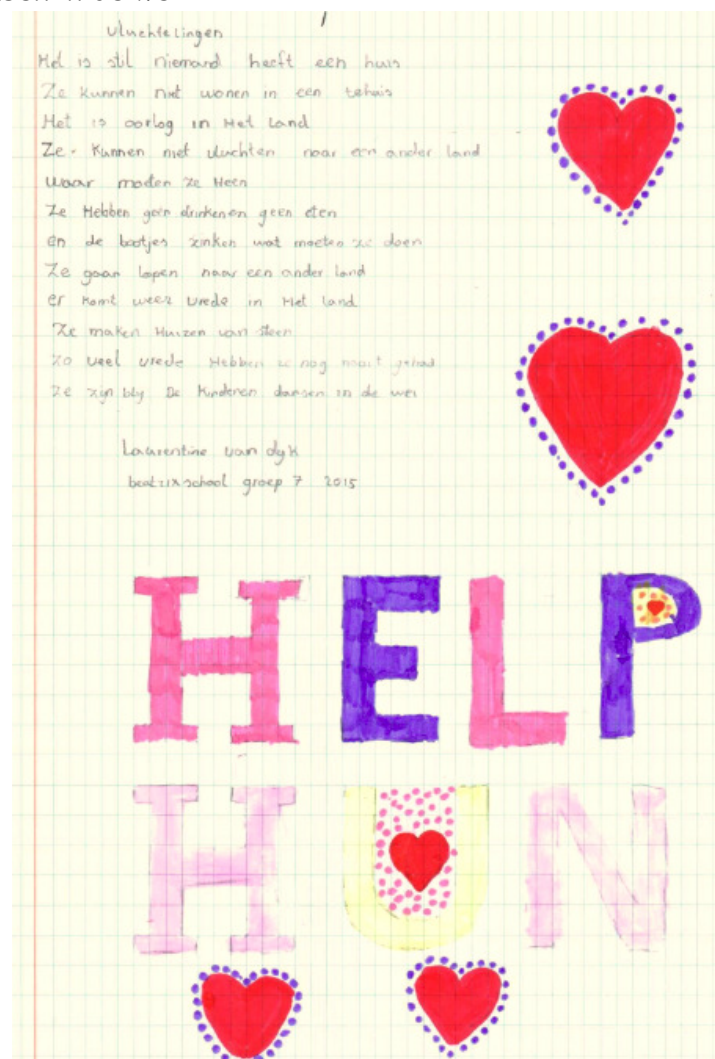 vluchtelingen
Het is stil niemand heeft een huis
Ze kunnen niet wonen in een tehuis
Het is oorlog in Het land
Ze kunnen niet vluchten naar een ander land
waar moeten ze Heen
Ze Hebben geen drinken en geen eten
en de bootjes zinken wat moeten ze doen
Ze gaan lopen naar een ander land
er komt weer vrede in Het land
Ze maken Huizen van steen
zo veel vrede Hebben ze nog nooit gehad
Ze zijn bly De kinderen dansen in de wei
Laurentine van dyk
beatrixschool groep 7 2015
HELP
HUN